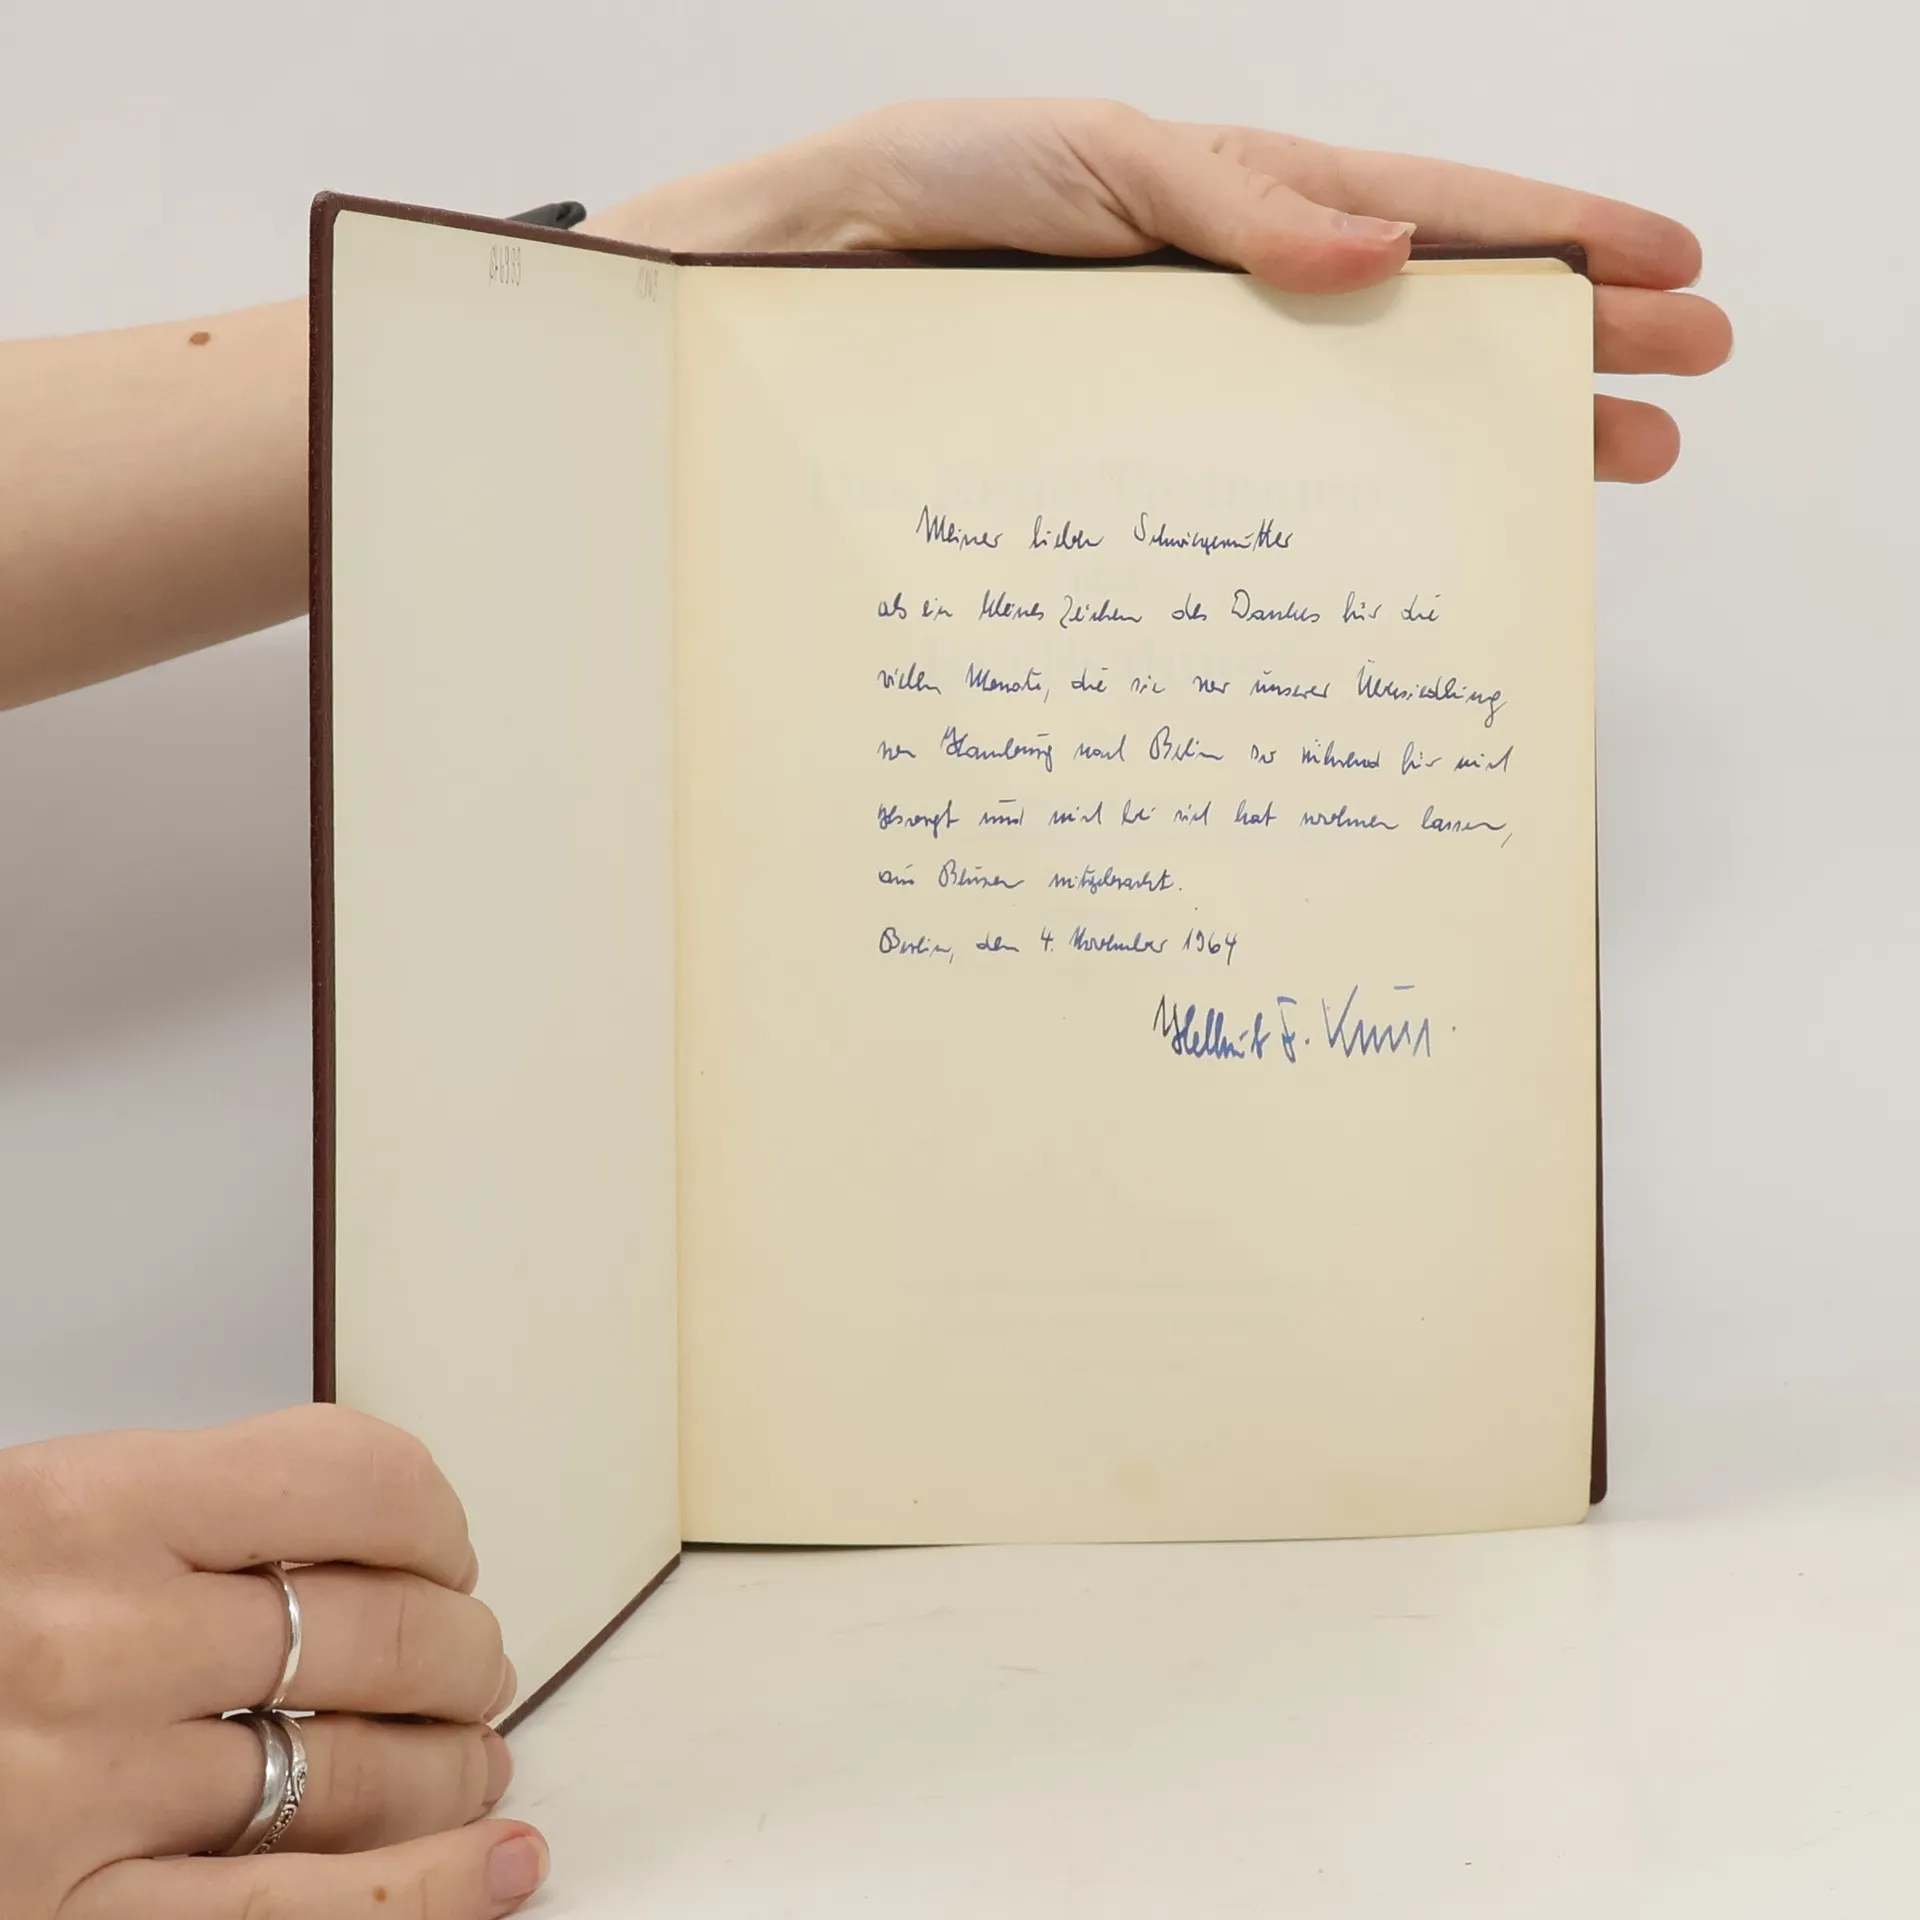 Meiner lieben Schwiegermutter
als ein kleines Zeichen des Dankes für die
vielen Monate, die sie vor unserer Übersiedlung
von Hamburg nach Berlin so rührend für mich
gesorgt und mich bei sich hat wohnen lassen,
aus mitgebracht.
Berlin, den 4. November 1964
Hellmut F.